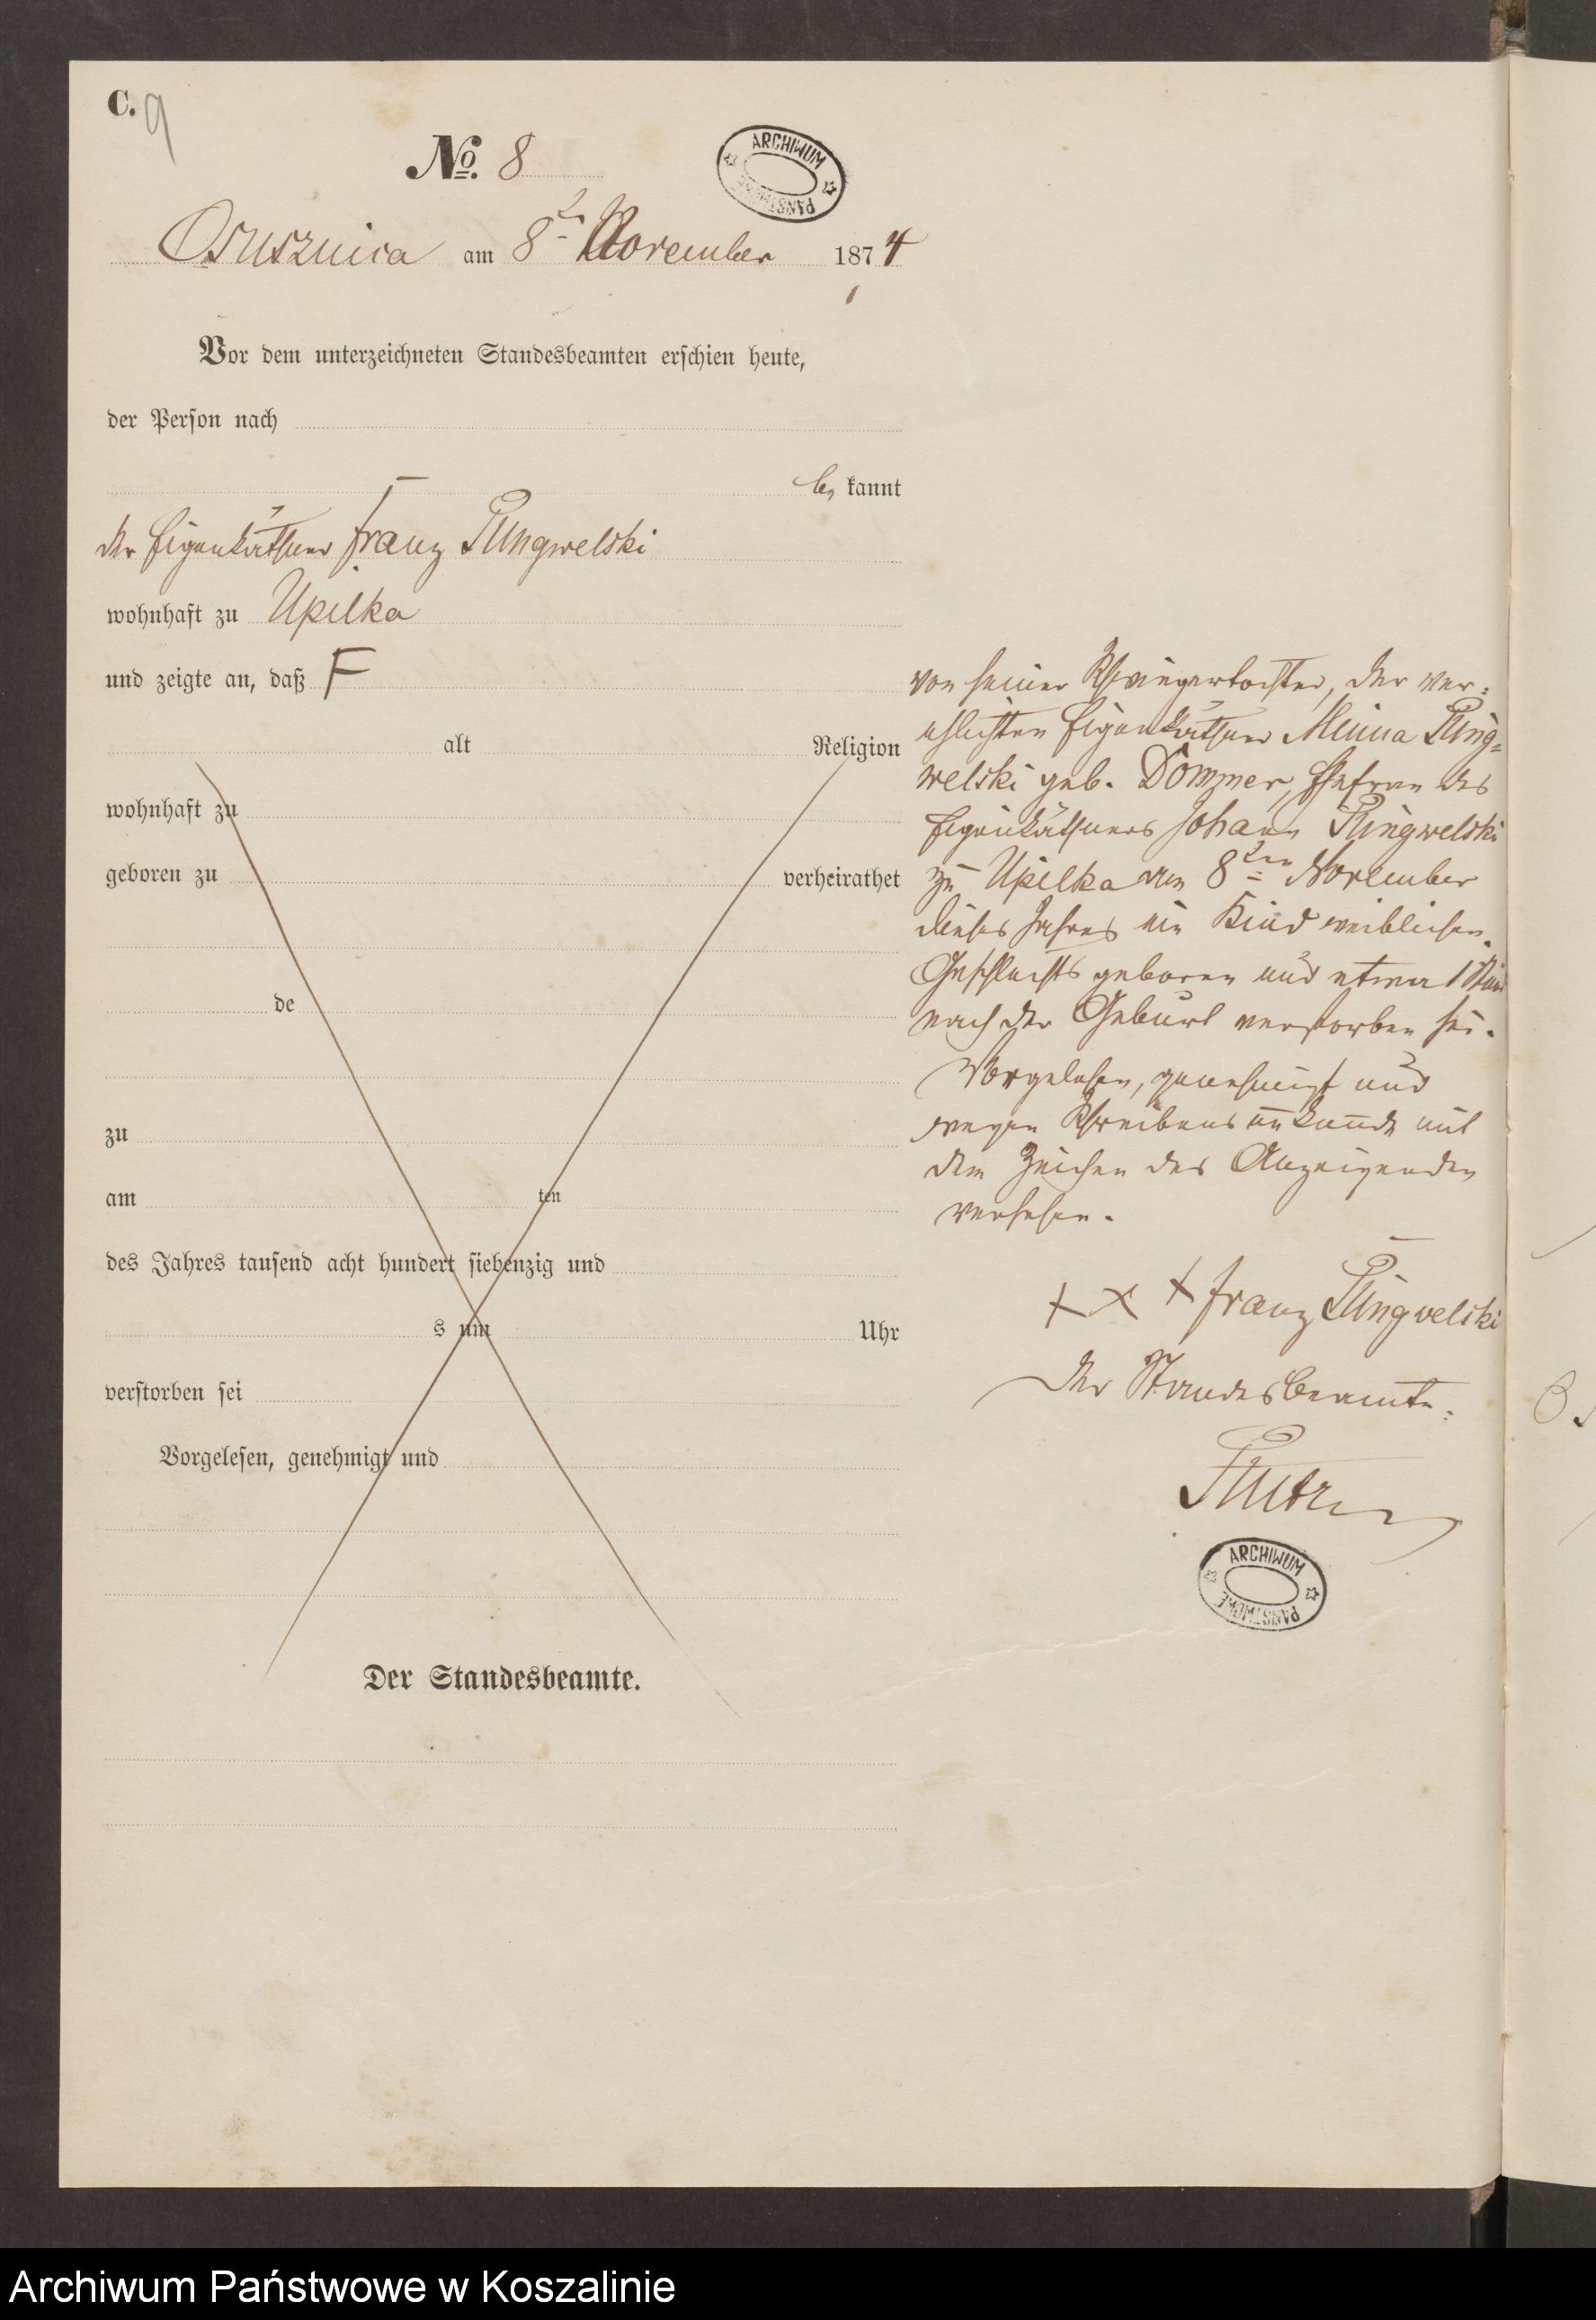 C.
9
No. 8
ARCHIWUM PAŃSTWOWE
Osusznica am 8ten November 1874
Vor dem unterzeichneten Standesbeamten erschien heute,
der Person nach
be kannt
der Eigenkäthner Franz Plungwelski
wohnhaft zu Upilka
und zeigte an, daß F
alt Religion
wohnhaft zu
geboren zu verheirathet
de
zu
am ten
des Jahres tausend acht hundert siebenzig und
s um Uhr
verstorben sei
Vorgelesen, genehmigt und
Der Standesbeamte.
von seiner Schwiegertochter, der ver-
ehlichten Eigenkäthner Minna
geb. Dommer, Ehefrau des
Eigenkäthners Johann
zu Upilka am 8ten November
dieses Jahres ein Kind weiblichen
Geschlechts geboren und etwa 1
nach der Geburt verstorben sei.
Vorgelesen, genehmigt und
wegen Schreibensunkunde mit
dem Zeichen des Anzeigenden
versehen.
+ x + Franz
Der Standesbeamte.
ARCHIWUM PAŃSTWOWE
Archiwum Państwowe w Koszalinie